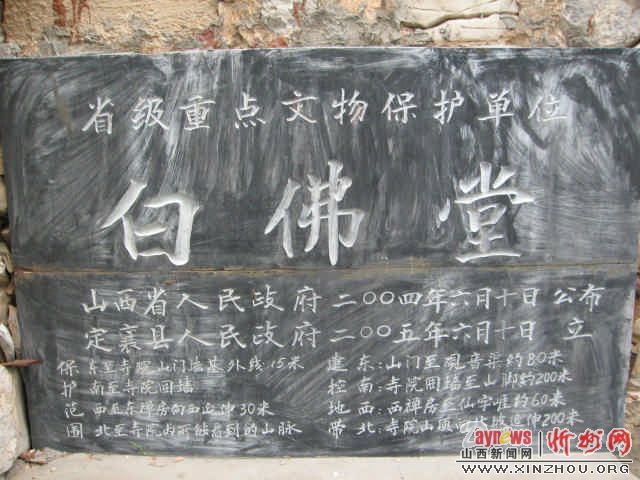 省级重点文物保护单位
白佛堂
山西省人民政府二〇〇四年六月十日公布
定襄县人民政府二〇〇五年六月十日 立
保 东至寺院山门墙基外线15米
护 南至寺院围墙
范 西至东禅房向西延伸30米
围 北至寺院内可能看到的山脉
建 东:山门至观音渠约80米
控 南:寺院围墙至山脚约200米
地 西:西禅房至仙字崖约60米
带 北:寺院山顶延伸200米
aynews
山西新闻网
忻州网
www.XINZHOU.ORG